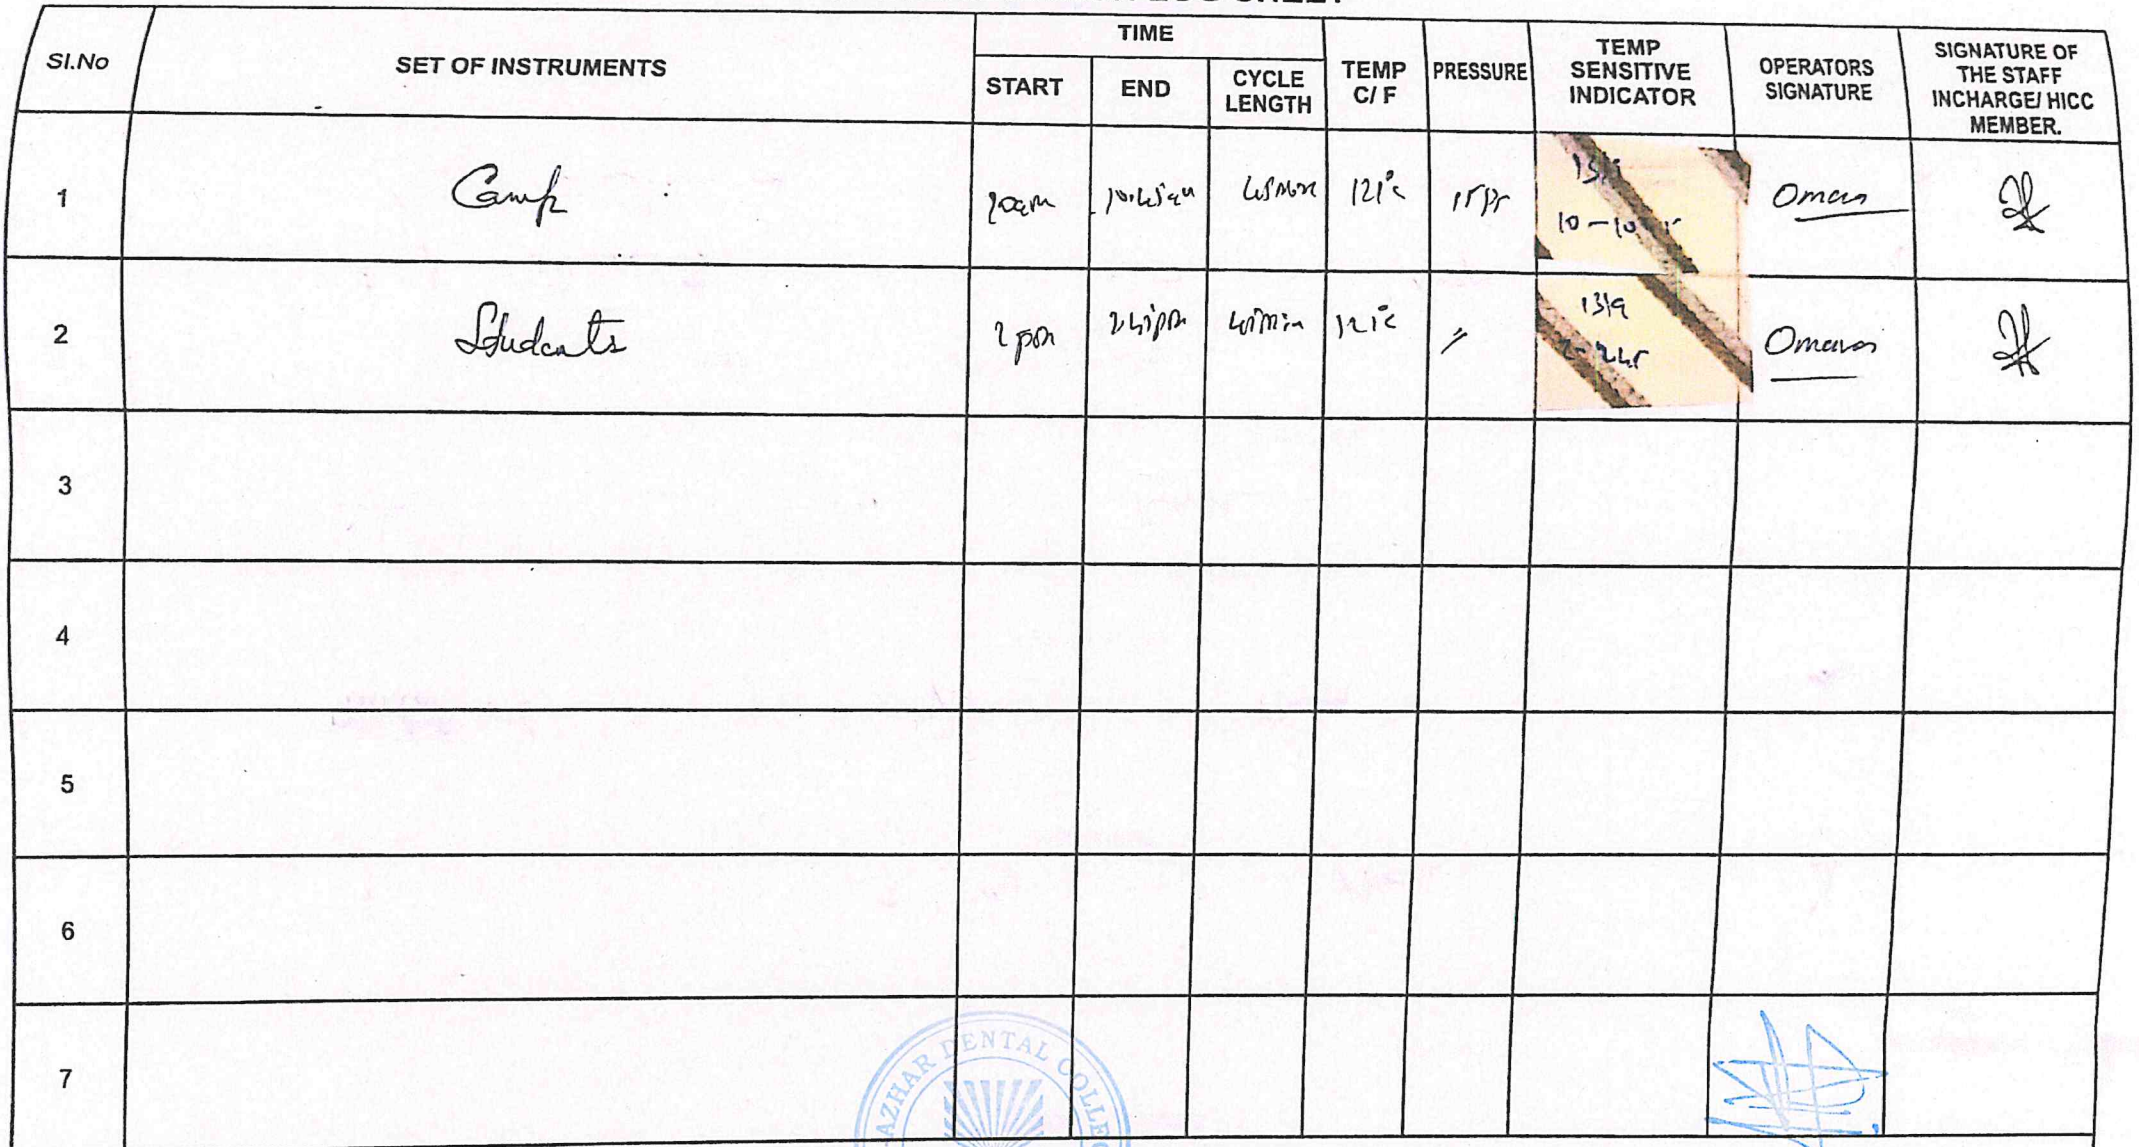 TIME
SI.No SET OF INSTRUMENTS START END CYCLE LENGTH TEMP C/ F PRESSURE TEMP SENSITIVE INDICATOR OPERATORS SIGNATURE SIGNATURE OF THE STAFF INCHARGE/ HICC MEMBER.
1 Camp 10am 10.45am 45min 121°c
10 - 10
2 Students 2pm 245pm 45min 121°c 〃
13/9
2 - 245
3
4
5
6
7
AZHAR DENTAL COLLEG